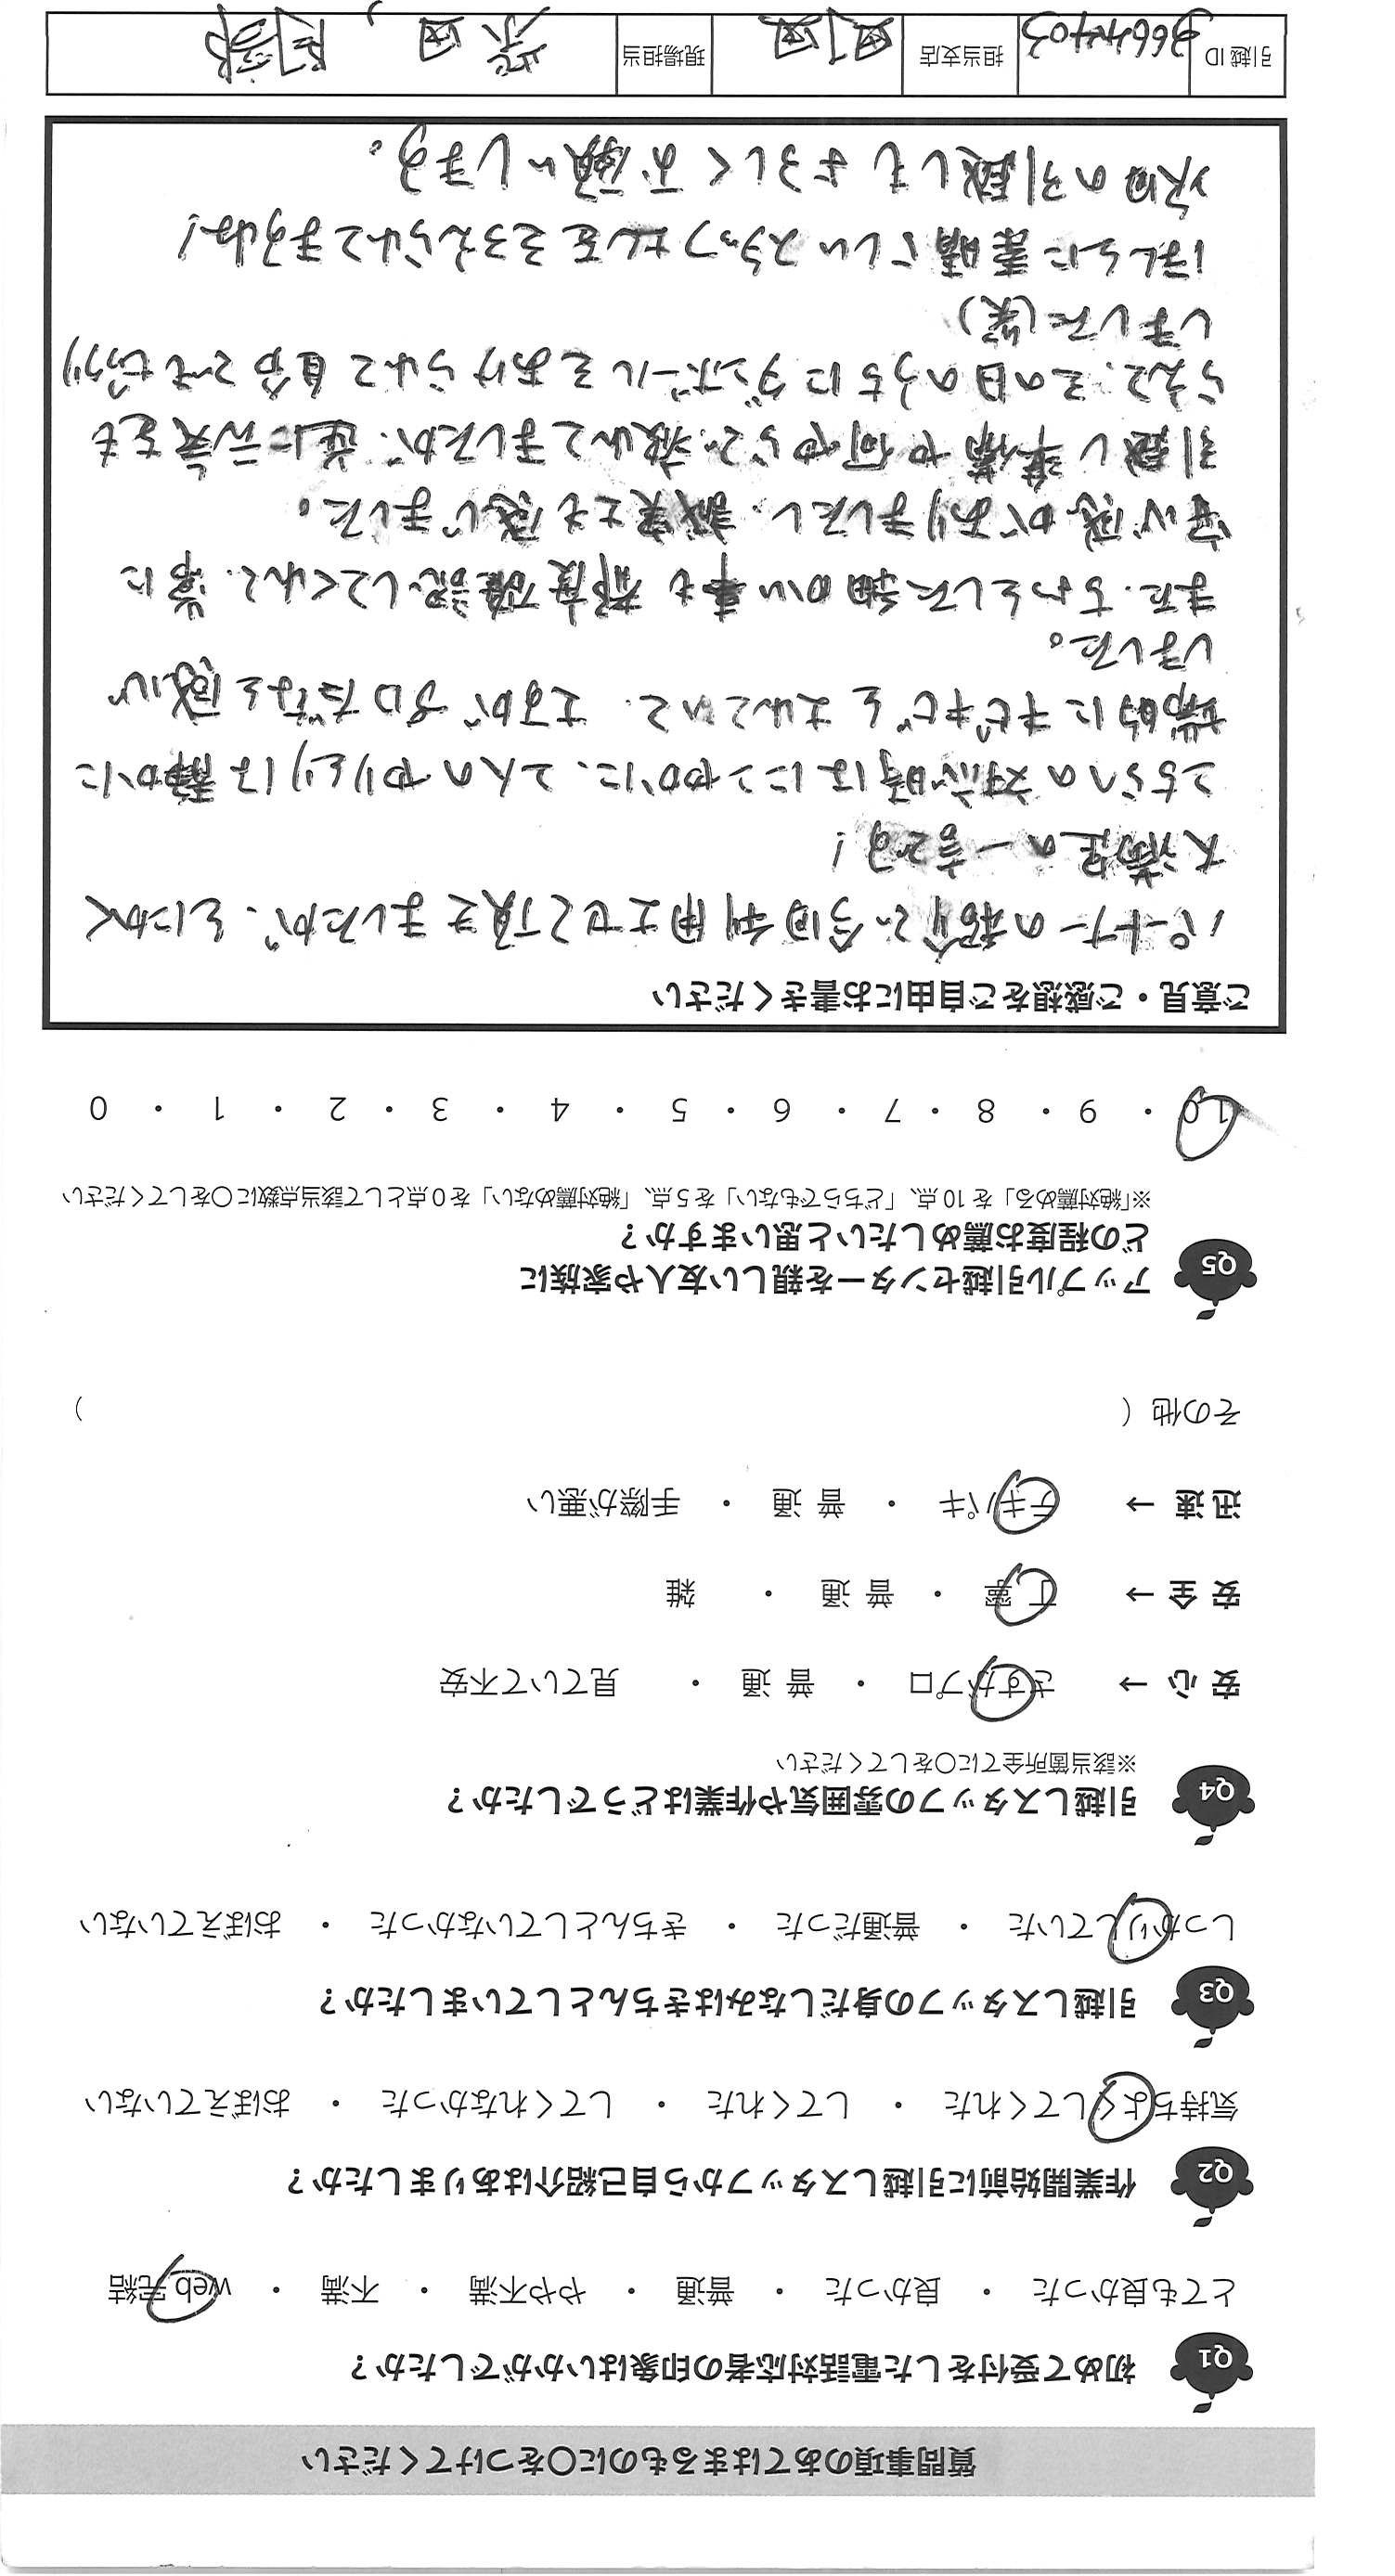 質問事項のあてはまるものに○をつけてください
Q1 初めて受付をした電話対応者の印象はいかがでしたか？
とても良かった ・ 良かった ・ 普通 ・ やや不満 ・ 不満 ・ web 完結
Q2 作業開始前に引越しスタッフから自己紹介はありましたか？
気持ちよくしてくれた ・ してくれた ・ してくれなかった ・ おぼえていない
Q3 引越しスタッフの身だしなみはきちんとしていましたか？
しっかりしていた ・ 普通だった ・ きちんとしていなかった ・ おぼえていない
Q4 引越しスタッフの雰囲気や作業はどうでしたか？
※該当箇所全てに○をしてください
安 心 → さすがプロ ・ 普 通 ・ 見ていて不安
安 全 → 丁 寧 ・ 普 通 ・ 雑
迅 速 → テキパキ ・ 普 通 ・ 手際が悪い
その他（ ）
Q5 アップル引越センターを親しい友人や家族に
どの程度お薦めしたいと思いますか？
※「絶対薦める」を 10 点、「どちらでもない」を 5 点、「絶対薦めない」を 0 点として該当点数に○をしてください
10 ・ 9 ・ 8 ・ 7 ・ 6 ・ 5 ・ 4 ・ 3 ・ 2 ・ 1 ・ 0
ご意見・ご感想をご自由にお書きください
パートナーの紹介で今回利用させて頂きましたが、とにかく
大満足の一言です！
こちらへの対応時はにこやかに、2人のやりとりは静かに
端的にキビキビとされていて、さすがプロだなと感心
しました。
また、ちょっとした細かい事も都度確認してくれて、常に
安心感がありましたし、誠実さも感じました。
引越し準備や何やらで疲れてましたが、逆に元気をも
らえて、その日のうちにダンボールをあけられて自分でもビックリ
しました(笑)
ほんとに素晴らしいスタッフさんをそろえられてますね！
次回の引越しもよろしくお願いします。
引越 ID 担当支店 現場担当